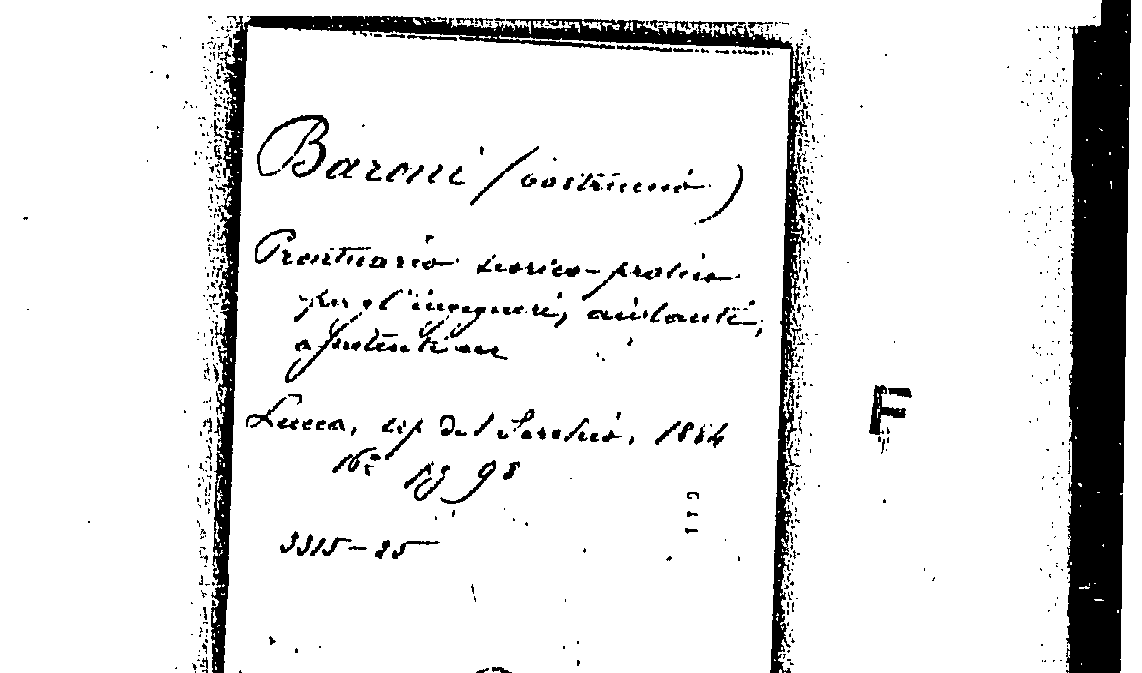 Baroni (Costruzio)
Prontuario teorico-pratico
per gl'ingegneri, aiutanti,
Lucca, tip del Serchio, 1884
16º pg 98
3315-85
F